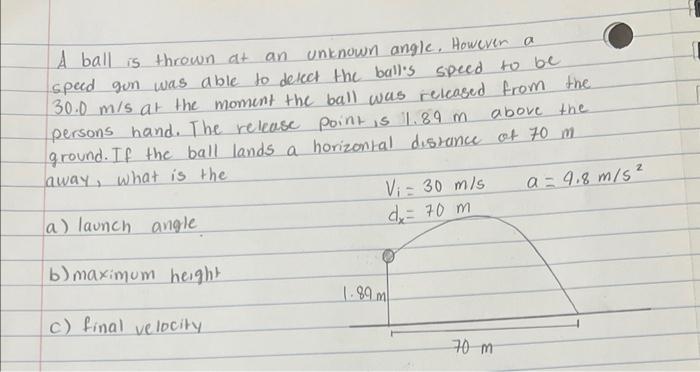 A ball is thrown at an unknown angle. However a
speed gun was able to detect the ball's speed to be
30.0 m/s at the moment the ball was released from the
persons hand. The release point is 1.89 m above the
ground. If the ball lands a horizontal distance of 70 m
away, what is the
Vi = 30 m/s a = 9.8 m/s²
dx = 70 m
a) launch angle
b) maximum height
1.89 m
c) final velocity
70 m